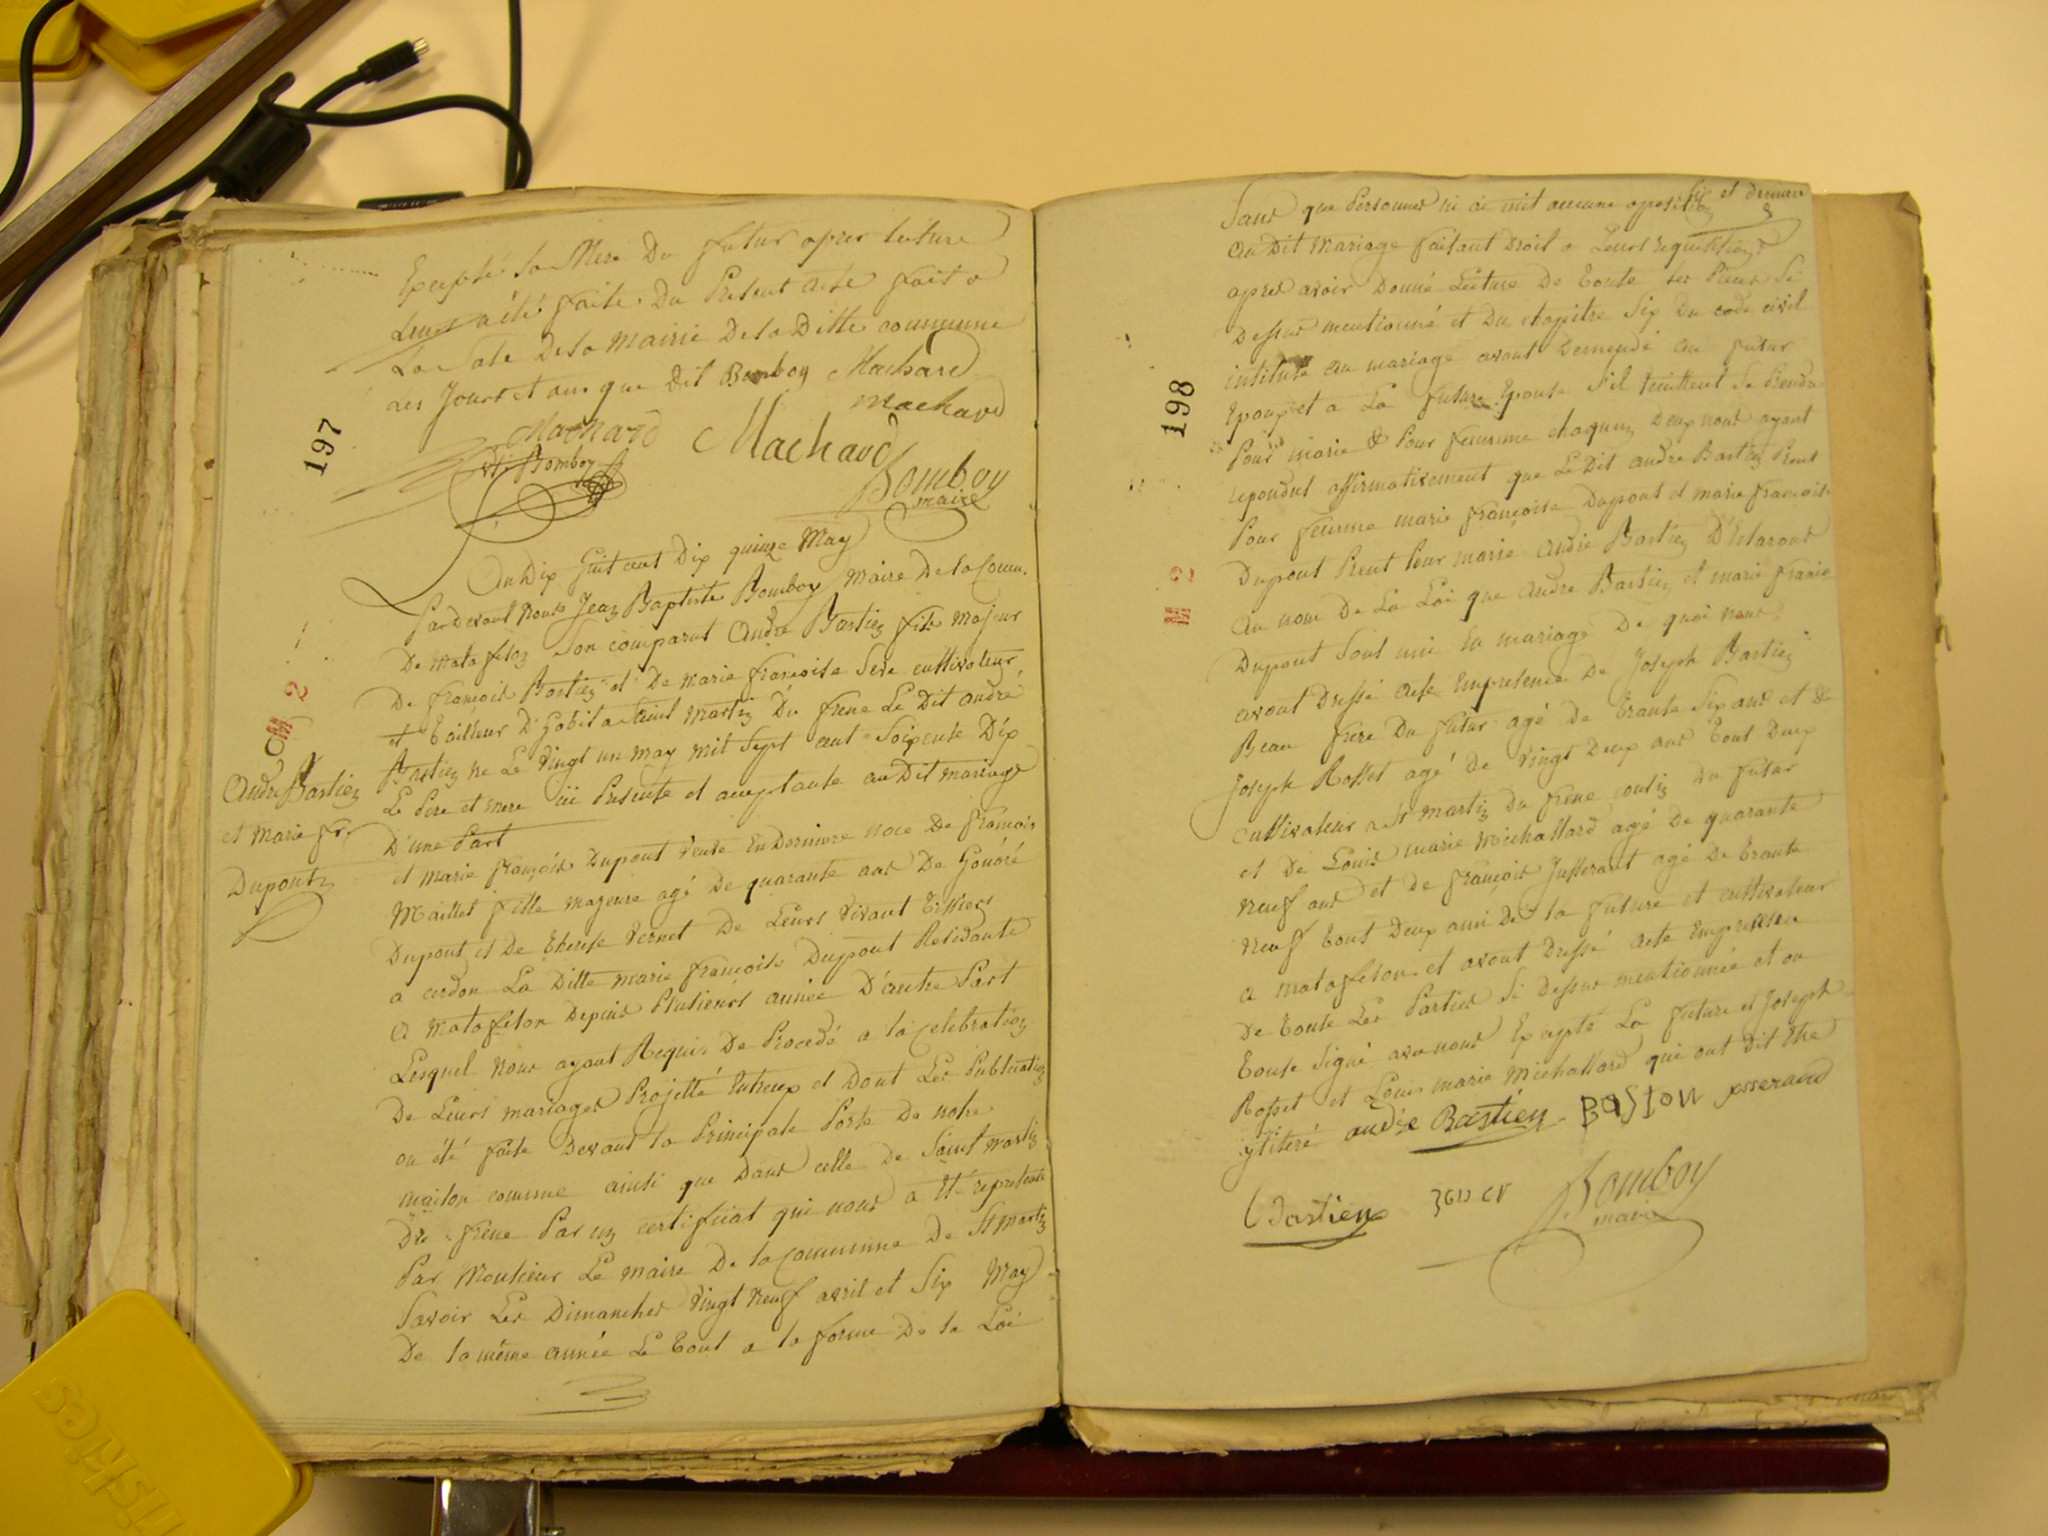 Excepté la Mere Du futur apres lecture
Leurs a été faite Du Present acte fait a
La Sale De la Mairie De la Ditte commune
Les Jours et ans que Dit Bomboy Machard
machard
Machard Machard
Bomboy
Bomboy
maire
197
An Dix huit cent Dix quinze May
Pardevant Nous Jean Baptiste Bomboy Maire De la Comu.
De matafelon Son comparut André Bastien fils Majeur
De françois Bastien et De marie françoise Seve cultivateur
et Tailleur D'habit a Saint Martin Du frene Le Dit andré
Bastien ne Le Vingt un may mil Sept cent Soixente Dix
Le Pere et mere ici Presente et aceptante au Dit mariage
D'une Part
CM 2
André Bastien
et Marie fr.
Dupont
et marie françoise Dupont Veuve En Derniere noce De françois
Maillet fille majeure agé De quarante ans De honoré
Dupont et De Therese Vernet De Leurs Vivant
a cerdon La Ditte marie françoise Dupont Residante
a Matafelon Depuis Plusieurs année D'autre Part
Lesquel Nous ayant Requis De Procedé a la Celebration
De Leurs mariages Projetté Entreux et Dont Les Publication
on été faite Devant la Principale Porte De notre
maison comune ainsi que Dans celle De Saint Martin
Du frene Par un certificat qui nous a Eté representé
Par Monsieur Le maire De la Commune De St Martin
Savoir Les Dimanches Vingt Neuf avril et Six May
De la même année Le Tout a la forme De la Loi
198
Sans que Personnes ni ai mit aucune oposition
Au Dit Mariage faisant Droit a Leurs requisition
apres avoir Donné Lecture De Toute les Pieces Si
Dessus mentionné et Du chapitre Six Du code civil
intitulé au mariage avont Demendé au futur
Epoux et a La future Epouse S'il veuillent Se Prendre
Pour marie & Pour femme chaquun Deux nous ayant
repondut affirmativement que Le Dit andré Bastien Prent
Pour femme marie françoise Dupont et marie françoise
Dupont Prent Pour marie André Bastien D'Eclarons
Au nom De La Loi que André Bastien et marie françoise
Dupont Sont uni En mariage De quoi nous
avont Dressé acte Empresence De Joseph Bastien
Beau frere Du futur agé De Trante Six ans et de
Joseph Rosset agé de Vingt Deux ans Tout Deux
cultivateur a St martin Du frene cousin Du futur
et De Louis marie Michallard agé De quarante
Neuf ans et de françois Jusserant agé De Trante
Neuf Tout Deux ami De la future et cultivateur
a matafelon et avont Dressé acte Empresence
De Toute Les Parties Si Dessus mentionnée et on
Toute Signé avec nous Excepté La future et Joseph
Rosset et Louis marie Michallard qui ont Dit
andré Bastien BaSton
Bastien
Bomboy
maire
M 2